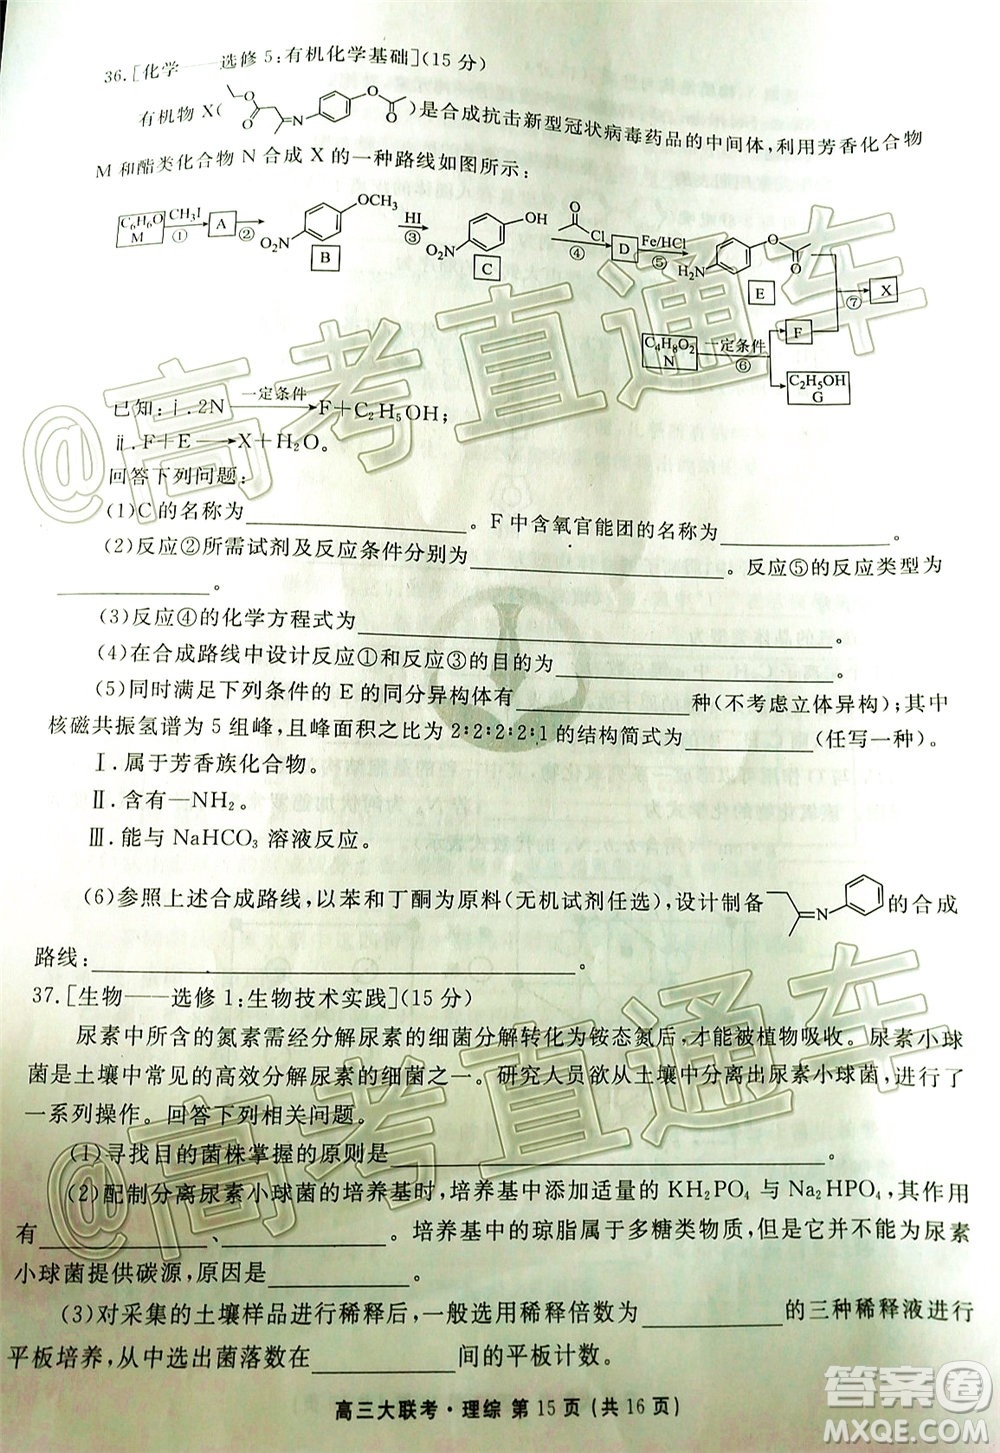 36.[化学——选修5:有机化学基础](15分)
有机物X( O O N O O )是合成抗击新型冠状病毒药品的中间体,利用芳香化合物
M和酯类化合物N合成X的一种路线如图所示:
C₆H₆O M CH₃I ① A ② O₂N OCH₃ B HI ③ O₂N OH C O Cl ④ D Fe/HCl ⑤ H₂N O O E ⑦ X
C₄H₈O₂ N 一定条件 ⑥ F
C₂H₅OH G
已知:ⅰ.2N 一定条件→ F+C₂H₅OH;
ⅱ.F+E→X+H₂O。
回答下列问题:
(1)C的名称为________。F中含氧官能团的名称为________。
(2)反应②所需试剂及反应条件分别为________。反应⑤的反应类型为
________。
(3)反应④的化学方程式为________。
(4)在合成路线中设计反应①和反应③的目的为________。
(5)同时满足下列条件的E的同分异构体有________种(不考虑立体异构);其中
核磁共振氢谱为5组峰,且峰面积之比为2∶2∶2∶2∶1的结构简式为________(任写一种)。
Ⅰ.属于芳香族化合物。
Ⅱ.含有—NH₂。
Ⅲ.能与NaHCO₃溶液反应。
(6)参照上述合成路线,以苯和丁酮为原料(无机试剂任选),设计制备 N 的合成
路线:________。
37.[生物——选修1:生物技术实践](15分)
尿素中所含的氮素需经分解尿素的细菌分解转化为铵态氮后,才能被植物吸收。尿素小球
菌是土壤中常见的高效分解尿素的细菌之一。研究人员欲从土壤中分离出尿素小球菌,进行了
一系列操作。回答下列相关问题。
(1)寻找目的菌株掌握的原则是________。
(2)配制分离尿素小球菌的培养基时,培养基中添加适量的KH₂PO₄与Na₂HPO₄,其作用
有________。培养基中的琼脂属于多糖类物质,但是它并不能为尿素
小球菌提供碳源,原因是________。
(3)对采集的土壤样品进行稀释后,一般选用稀释倍数为________的三种稀释液进行
平板培养,从中选出菌落数在________间的平板计数。
高三大联考·理综 第15页(共16页)
@高考直通车
@高考直通车
答案圈
MXQE.COM